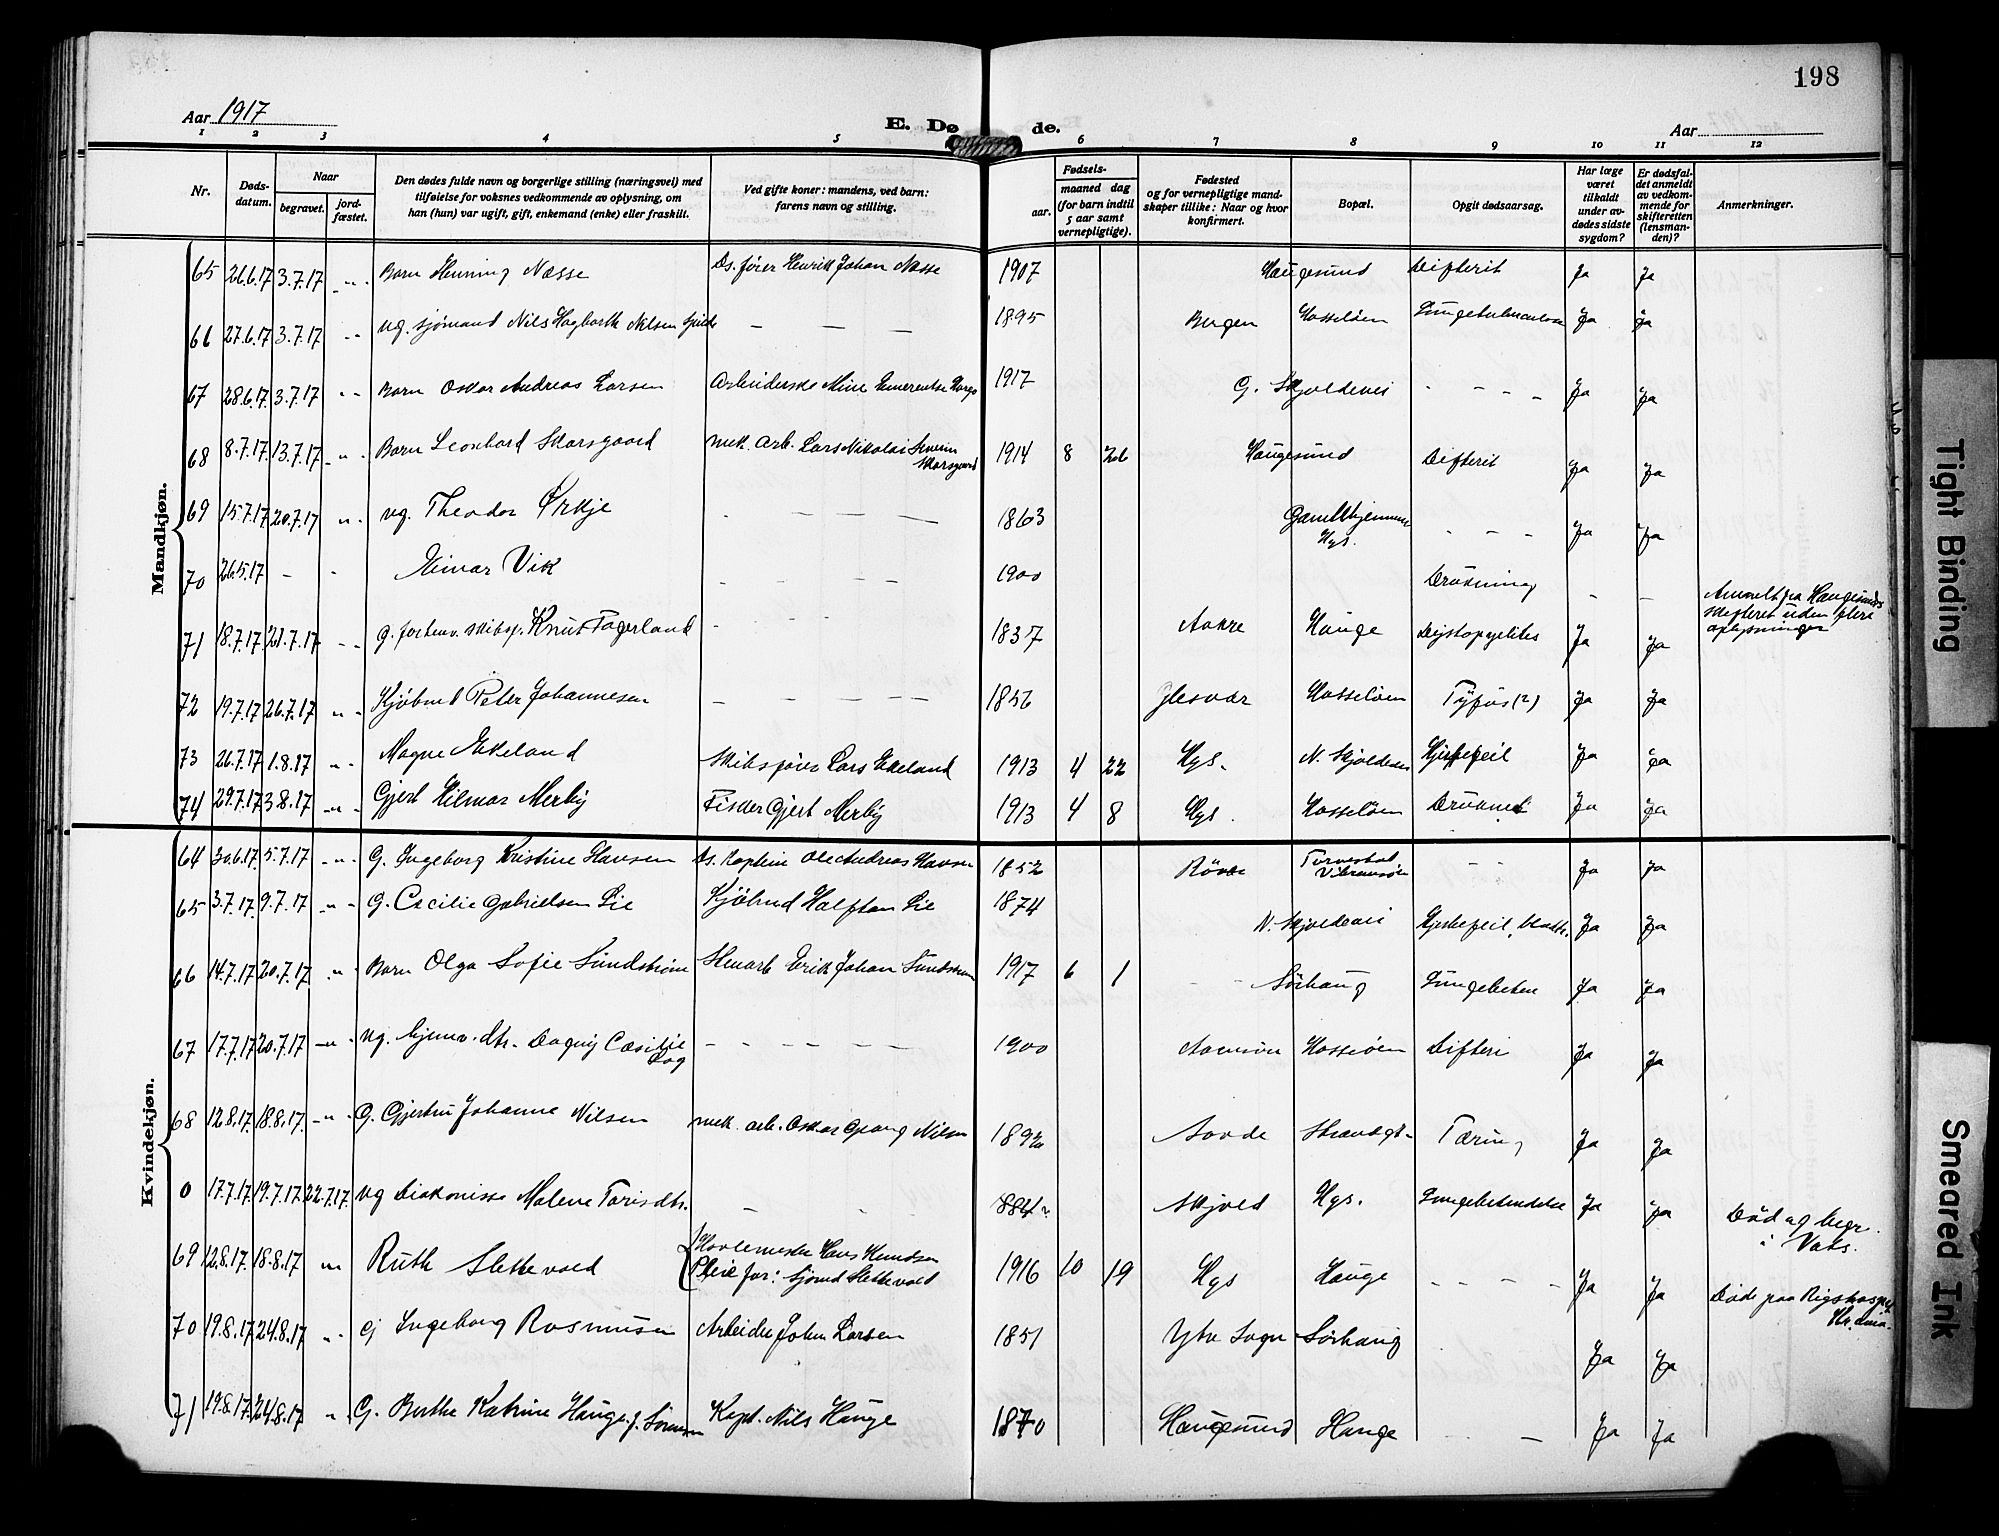 198
Aar 1917
E. Dø de.
Aar
1 2 3 4 5 6 7 8 9 10 11 12
Nr.
Døds-
datum.
Naar
begravet.
jord-
fæstet.
Den dødes fulde navn og borgerlige stilling (næringsvei) med
tilføielse for voksnes vedkommende av oplysning, om
han (hun) var ugift, gift, enkemand (enke) eller fraskilt.
Ved gifte koner: mandens, ved barn:
farens navn og stilling.
Fødsels-
aar.
maaned dag
(for barn indtil
5 aar samt
vernepligtige).
Fødested
og for vernepligtige mand-
skaper tillike: Naar og hvor
konfirmert.
Bopæl.
Opgit dødsaarsag.
Har læge
været
tilkaldt
under av-
dødes sidste
sygdom?
Er dødsfal-
det anmeldt
av vedkom-
mende for
skifteretten
(lensman-
den)?
Anmerkninger.
Mandkjøn.
65 26.6.17 3.7.17 -"- Barn Henning Næsse Ds. fører Henrik Johan Næsse 1907 Haugesund Difterit Ja Ja
66 27.6.17 3.7.17 -"- ug. sjømand Nils Hagbarth Nilsen — — — 1895 Bergen Hasseløen Lungetuberculose Ja Ja
67 28.6.17 3.7.17 -"- Barn Oskar Andreas Larsen Arbeiderske Mine 1917 G. Skjoldevei - - - - Ja Ja
68 8.7.17 13.7.17 -"- Barn Leonhard Skarsgaard mek. arb. Lars Nikolai Severin
Skarsgaard 1914 8 26 Haugesund Difterit Ja Ja
69 15.7.17 20.7.17 -"- ug. Theodor Ørkje - — — — 1863 Gamlehjemmet
Hgs. - - - Ja Ja
70 26.5.17 - - Vik - — — — 1900 Drukning - - Anmeldt fra Haugesunds
skifteret uden flere
oplysninger
71 18.7.17 21.7.17 -"- g. forhenv. skibsf. Knut Fagerland - - - - 1837 Aakre Hauge Ja Ja
72 19.7.17 26.7.17 -"- Kjøbmd Peter Johannesen — — — — 1856 Glesvær Hasseløen Tyfus (?) Ja Ja
73 26.7.17 1.8.17 -"- Magne Ekeland Skibsfører Lars Ekeland 1913 4 22 Hgs. N. Skjoldevei Hjertefeil Ja Ja
74 29.7.17 3.8.17 -"- Gjert Hilmar Merby Fisker Gjert Merby 1913 4 8 Hgs. Hasseløen Druknet Ja Ja
Kvindekjøn.
64 30.6.17 5.7.17 -"- G. Ingeborg Kristine Hansen Ds. Kaptein Ole Andreas Hansen 1852 Torvestad
- - Ja Ja
65 3.7.17 9.7.17 -"- G. Cecilie Gabrielsen Lie Kjøbmd Halftan Lie 1874 N. Skjoldevei Hjertefeil, Ja Ja
66 14.7.17 20.7.17 -"- Barn Olga Sofie Sundstrøm Stuert Erik Johan Sundstrøm 1917 6 1 - - Sørhaug Ja Ja
67 17.7.17 20.7.17 -"- ug. hjemv. dtr. Dagny Cæsilie
Log — — — — — 1900 Hasseløen Difteri Ja Ja
68 12.8.17 18.8.17 -"- G. Gjertru Johanne Nilsen mek. arb. Oskar Georg Nilsen Sovde Strandgt. Tæring Ja Ja
0 17.7.17 19.7.17 22.7.17 ug Diakonisse Malene Torisdtr. — - - 1884 Skjold Hgs. Lungebetendelse Ja Ja Død og begr.
i Vaks.
69 12.8.17 18.8.17 -"- Ruth Slettevold Hans Knudsen
Pleie for: Sjømd Slettevold 1916 10 19 Hgs Hauge - - - - Ja Ja
70 19.8.17 24.8.17 -"- Gj Ingeborg Rasmusen Arbeider John Larsen 1851 Ytre Sogn Sørhaug Ja Ja Døde paa Rigshosp.
Kr.ania.
71 19.8.17 24.8.17 -"- G. Berthe Katrine Hauge f. Sørensen Kapt. Nils Hauge 1870 Haugesund Hauge - — Ja Ja
Tight Binding
Smeared Ink